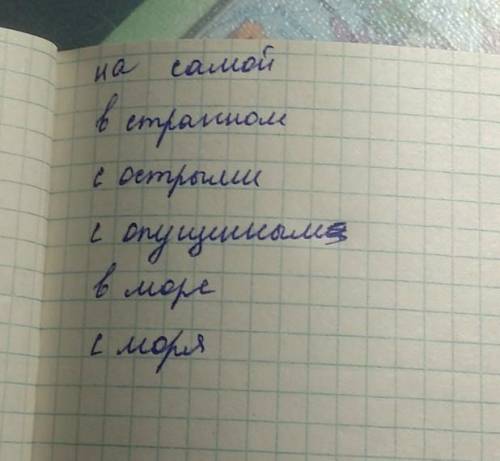 на самой
в странном
с острыми
с опущенным
в море
с моря